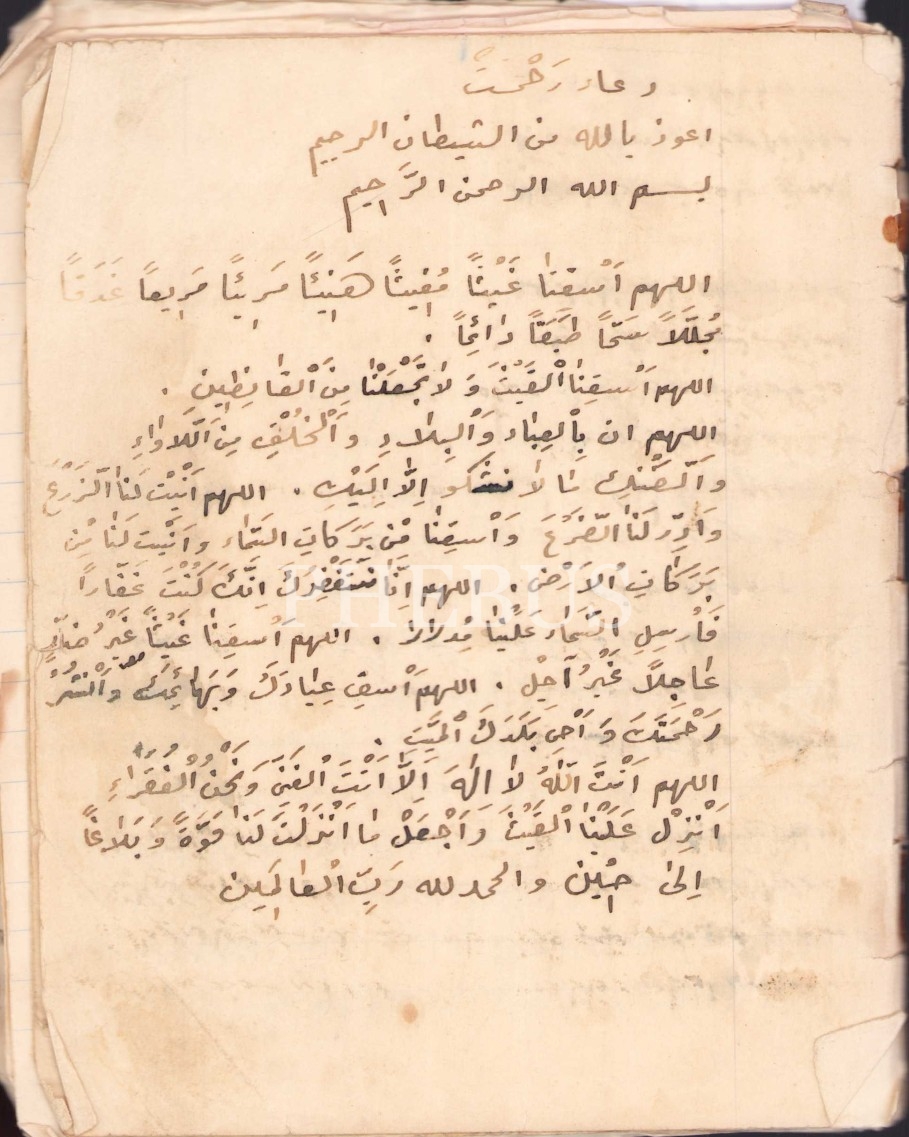 دعاء رَحْمَتْ
اعوذ بالله من الشيطان الرجيم
بسم الله الرحمن الرَّحِيم
اللهم اَسْقِنَا غَيْثاً مُغِيثاً هَنِيئاً مَرِيئاً مَرِيعاً غَدَقاً
مُجَلِّلاً سَحّاً طَبَقاً دَائِماً .
اللهم اَسْقِنَا الْغَيْثَ وَلَا تَجْعَلْنَا مِنَ الْقَانِطِينَ .
اللهم ان بِالْعِبَاد وَالْبِلَادِ وَالْخَلْقِ مِنَ اللَّاوَاءِ
وَالضَّنْكِ مَا لَا نشكو اِلَّا اِلَيْكِ . اللهم اَنْبِتْ لَنَا الزَّرْعَ
وَاَدِرَّ لَنَا الضَّرْعَ وَاَسْقِنَا مِنْ بَرَكَاتِ السَّمَاء وَاَنْبِتْ لَنَا مِنْ
بَرَكَاتِ الْاَرْضِ . اللهم اِنَّا نَسْتَغْفِرُكَ اِنَّكَ كُنْتَ غَفَّاراً
فَاَرْسِلِ السَّمَاءَ عَلَيْنَا مِدْرَارًا . اللهم اَسْقِنَا غَيْثاً غَيْرُ ضَارٍّ
عَاجِلاً غَيْرُ آجِلْ . اللهم اَسْقِ عِبَادَكَ وَبَهَائِمَكَ وَانْشُرْ
رَحْمَتَكَ وَاَحْيِ بَلَدَكَ الْمَيِّتَ .
اللهم اَنْتَ اللّٰهُ لَا اِلٰهَ اِلَّا اَنْتَ الْغَنِيُّ وَنَحْنُ الْفُقَرَاءِ
اَنْزِلْ عَلَيْنَا الْغَيْثَ وَاَجْعَلْ مَا اَنْزَلْتَ لَنَا قُوَّةً وَبَلَاغاً
اِلىٰ حِيْن والحمد لله رَبِّ الْعَالَمِين
PHEBUS